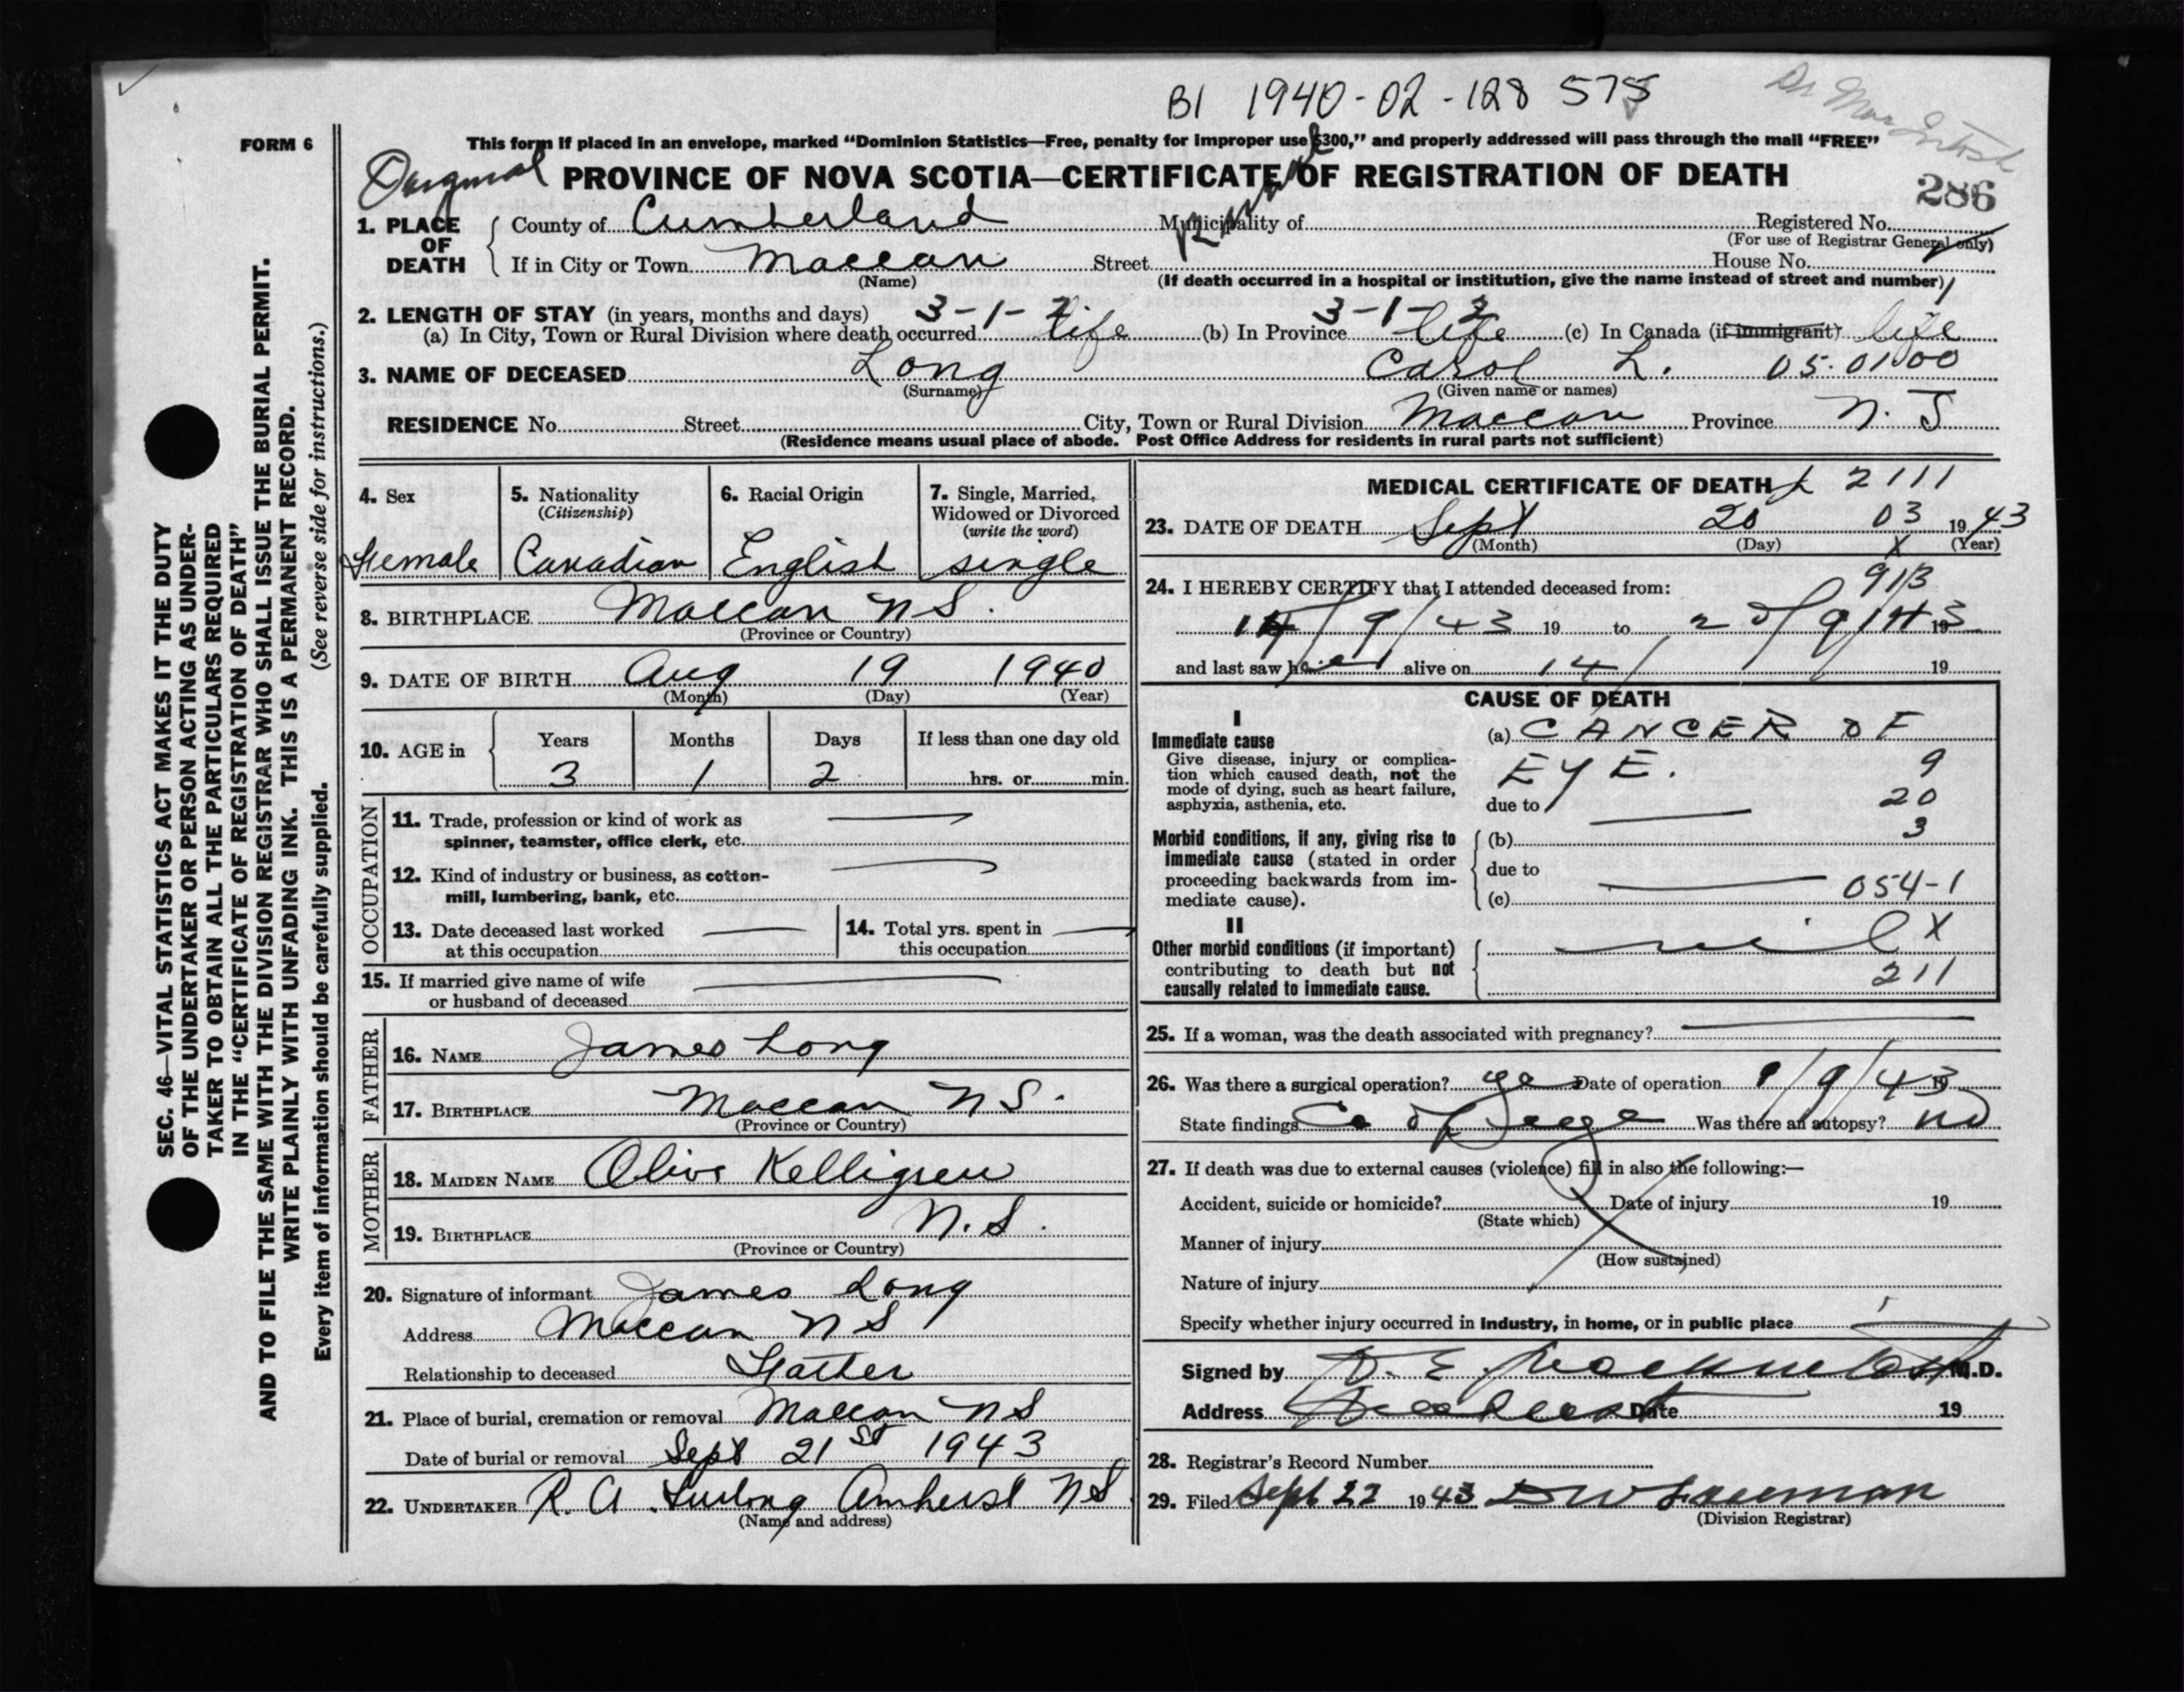 BI 1940-02-128 575
Dr MacIntosh
FORM 6
This form if placed in an envelope, marked “Dominion Statistics—Free, penalty for improper use $300,” and properly addressed will pass through the mail “FREE”
PROVINCE OF NOVA SCOTIA—CERTIFICATE OF REGISTRATION OF DEATH
286
1. PLACE OF DEATH
County of Cumberland Municipality of Registered No.
(For use of Registrar General only)
If in City or Town Maccan Street House No.
(Name) (If death occurred in a hospital or institution, give the name instead of street and number)
2. LENGTH OF STAY (in years, months and days) 3-1-2 3-1-2
(a) In City, Town or Rural Division where death occurred life (b) In Province life (c) In Canada (if immigrant) life
3. NAME OF DECEASED Long Carol L. 05.01.00
(Surname) (Given name or names)
RESIDENCE No. Street City, Town or Rural Division Maccan Province N.S
(Residence means usual place of abode. Post Office Address for residents in rural parts not sufficient)
4. Sex 5. Nationality (Citizenship) 6. Racial Origin 7. Single, Married, Widowed or Divorced (write the word)
Female Canadian English single
8. BIRTHPLACE Maccan NS.
(Province or Country)
9. DATE OF BIRTH Aug 19 1940
(Month) (Day) (Year)
10. AGE in Years Months Days If less than one day old
3 1 2 hrs. or min.
OCCUPATION
11. Trade, profession or kind of work as
spinner, teamster, office clerk, etc.
12. Kind of industry or business, as cotton-
mill, lumbering, bank, etc.
13. Date deceased last worked
at this occupation
14. Total yrs. spent in
this occupation
15. If married give name of wife
or husband of deceased
FATHER
16. NAME James Long
17. BIRTHPLACE Maccan NS.
(Province or Country)
MOTHER
18. MAIDEN NAME Olive Kelligrew
19. BIRTHPLACE N.S.
(Province or Country)
20. Signature of informant James Long
Address Maccan NS
Relationship to deceased Father
21. Place of burial, cremation or removal Maccan NS
Date of burial or removal Sept 21st 1943
22. UNDERTAKER R. A. Furlong Amherst NS
(Name and address)
MEDICAL CERTIFICATE OF DEATH 2111
23. DATE OF DEATH Sept 20 03 1943
(Month) (Day) X (Year)
24. I HEREBY CERTIFY that I attended deceased from:
913
14/9/43 19 to 20/9/43 19
and last saw her alive on 14/ 19
CAUSE OF DEATH
I
Immediate cause
Give disease, injury or complica-
tion which caused death, not the
mode of dying, such as heart failure,
asphyxia, asthenia, etc.
(a) CANCER OF
EYE. 9
due to 20
3
Morbid conditions, if any, giving rise to
immediate cause (stated in order
proceeding backwards from im-
mediate cause).
(b)
due to
(c) 054-1
II
Other morbid conditions (if important)
contributing to death but not
causally related to immediate cause.
nil X
211
25. If a woman, was the death associated with pregnancy?
26. Was there a surgical operation? Date of operation 9/43 19
State findings Ca of eye Was there an autopsy? no
27. If death was due to external causes (violence) fill in also the following:—
Accident, suicide or homicide? Date of injury 19
(State which)
Manner of injury
(How sustained)
Nature of injury
Specify whether injury occurred in industry, in home, or in public place
Signed by M.D.
Address Date 19
28. Registrar's Record Number
29. Filed Sept 22 1943
(Division Registrar)
SEC. 46—VITAL STATISTICS ACT MAKES IT THE DUTY
OF THE UNDERTAKER OR PERSON ACTING AS UNDER-
TAKER TO OBTAIN ALL THE PARTICULARS REQUIRED
IN THE “CERTIFICATE OF REGISTRATION OF DEATH”
AND TO FILE THE SAME WITH THE DIVISION REGISTRAR WHO SHALL ISSUE THE BURIAL PERMIT.
WRITE PLAINLY WITH UNFADING INK. THIS IS A PERMANENT RECORD.
Every item of information should be carefully supplied. (See reverse side for instructions.)